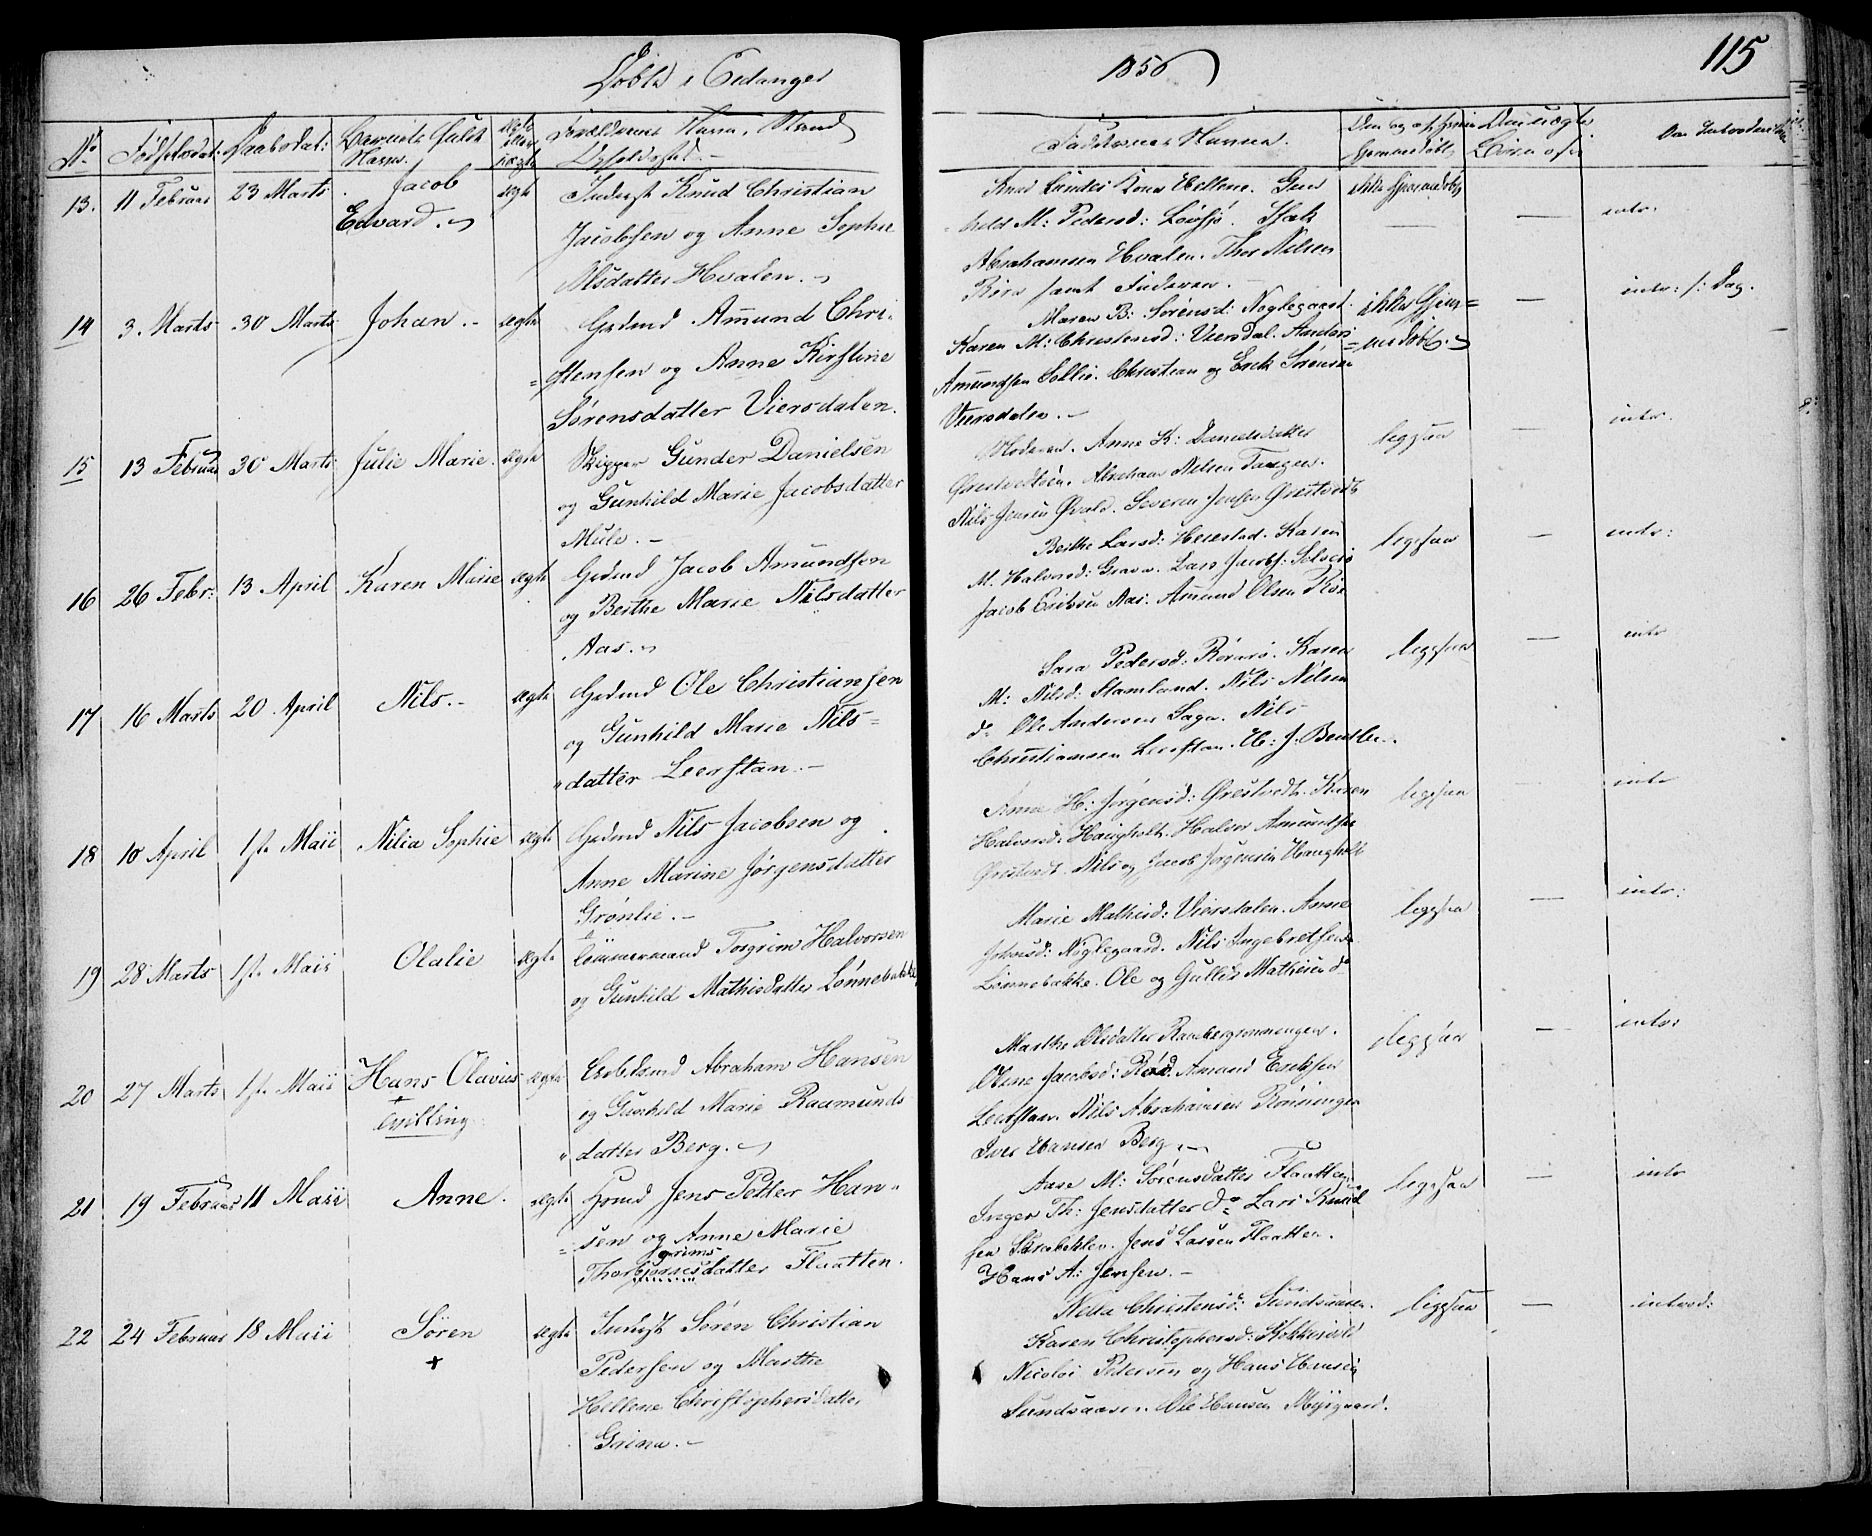 Döbte i Eidanger 1856 115
No Födselsdat: Daabsdat: Barnets fulde Navn. ægte eller uægte Forældrenes Navn, Stand Opholdssted.- Faddernes Navne. Om Introduction
13. 11 Februar 23 Marts Jacob Edvard. ægte Inderst Knud Christian
Jacobsen og Anne Sophie
Olsdatter Hvalen.
Knud Lundes Kone Hellene. Gun
hild M: Pedersd: Isak
Abrahamsen Hvalen. Thor Nilsen
samt Faderen.
ikke hjemmedøbt — intr:
14 3. Marts 30 Marts Johan.- ægte Grdmd Amund Chri-
=stensen og Anne Kirstine
Sørensdatter Viersdalen.
Maren B: Sørensd: Nøglegaard.
Karen M: Christensd: Viersdal. Anders
Amundsen Christian og Erik Sørensen
Viersdalen.-
ikke hjem=
=medøbt. — intr: s: Dag.
15 13 Februar 30 Marts Julie Marie. ægte Skipper Gunder Danielsen
og Gunhild Marie Jacobsdatter
Mule.-
Moderen. Anne K: Danielsdatter
Abraham Nilsen Tangen.
Nils Jensen Øvald. Severin Jensen Ørstvedt
legesaa — intr.
16 26 Febr: 13 April Karen Marie ægte Grdmd Jacob Amundsen
og Berthe Marie Nilsdatter
Aas.
Berthe Larsd: Herestad. Karen
M. Halvorsd: Grava. Lars Jacobs:
Jacob Eriksen Aas. Amund Olsen
legesaa — intr:
17 16 Marts 20 April Nils.- ægte Grdmd Ole Christiansen
og Gunhild Marie Nils=
"datter Leerstan.-
Sara Pedersd: Karen
M: Nilsd: Stamland. Nils Nilsen
do Ole Andersen Nils
Christiansen Leerstan. H: J. Bentsen.
legesaa — intr
18 10 April 1ste Maii Nilia Sophie ægte Grdmd Nils Jacobsen og
Anne Marine Jørgensdatter
Grønlie.-
Anne H: Jørgensd: Ørstvedt. Karen
Halvorsd: Haugholt. Halvor Amundsen
Ørstvedt. Nils og Jacob Jørgensen Haugholt
legesaa — intr
19 28 Marts 1ste Maii Olalie ægte Tömmermand Torgrim Halvorsen
og Gunhild Mathisdatter Lønnebakke
Marie Mathisd: Viersdalen. Anne
Nøglegaard. Nils Ingebretsen
Lønnebakke. Ole og Gullik Mathisen do
legesaa — intr:
20 27 Marts 1ste Maii Hans Olavius
+
tvilling ægte Arbeidsmd Abraham Hansen
og Gunhild Marie Raamunds
"datter Berg.
Marthe Olsdatter
Oline Jacobsd: Amund Eriksen
Leerstan. Nils Abrahamsen Rønningen
Iver Hansen Berg.
legesaa — intr:
21 19 Februar 11 Maii Anne. ægte Grmd Jens Petter Han-
=sen og Anne Marie
grims
Thorbjørnsdatter Flaatten.
Aase M: Sørensdatter Flaatten
Inger Th: Jensdatter do Lars Knud
sen Skrabeklev. Jens Larsen Flaatten.
Hans A: Jensen.-
legesaa — intr
22 24 Februar 18 Maii Sören
+ ægte Inderst Søren Christian
Pedersen og Marthe
Hellene Christophersdatter
Grina.-
Nella Christensd: Sundsaasen.
Karen Christophersd:
Nicolai Pedersen og Hans Hansen
Sundsaasen. Ole Hansen Myrgaard.
legesaa — introd: